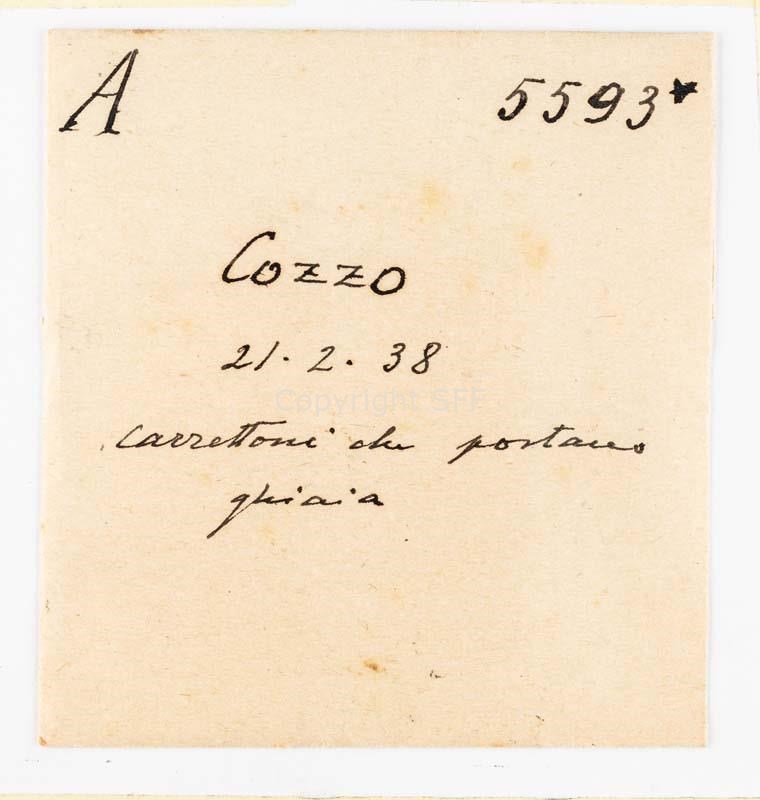 A 5593*
Cozzo
21. 2. 38
Copyright SFF
carrettoni che portano
ghiaia